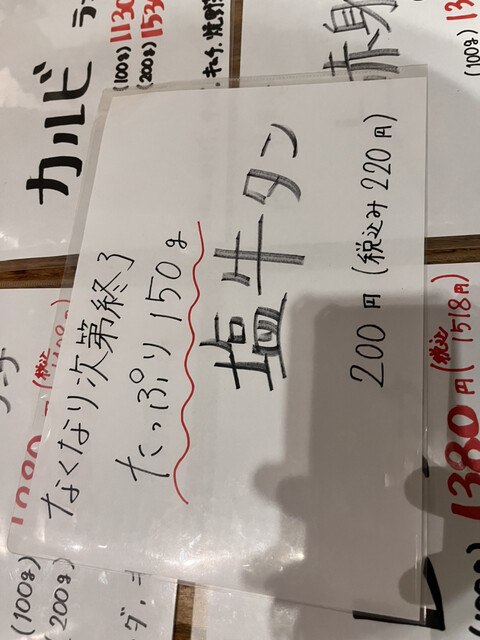 なくなり次第終了
たっぷり150g
塩牛タン
200円(税込み220円)
カルビ
(100g) 1130
(200g) 153
赤身
(100g) 13
1380円(税込1518円)
(100g)
(200g)